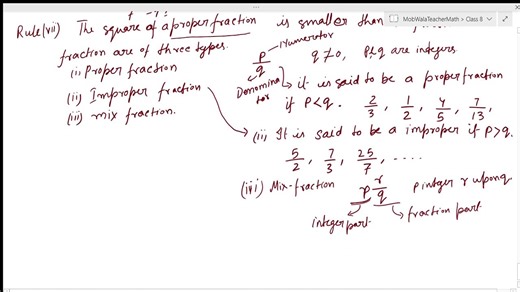 MobWalaTeacherMath > Class 8
Rule(vii) The square of a proper fraction is smaller than
fraction are of three types.
(i) Proper fraction
(ii) Improper fraction
(iii) mix fraction.
p/q Numerator q≠0, p&q are integers.
Denominator
it is said to be a proper fraction
if p<q. 2/3, 1/2, 4/5, 7/13,
(ii) It is said to be a improper if p>q.
5/2, 7/3, 25/7, ....
(iii) Mix-fraction p r/q p integer r upon q.
integer part fraction part